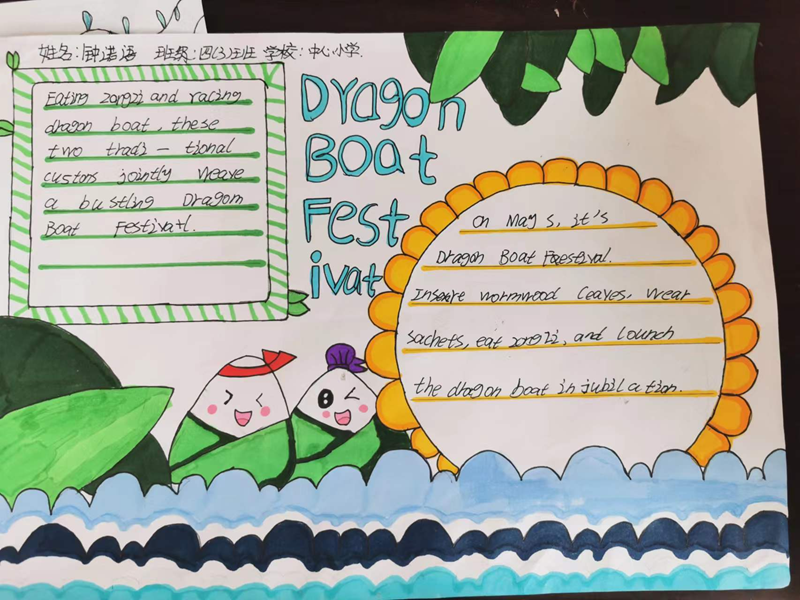 姓名:钟诺语 班级:四(3)班 学校:中心小学.
Eating zongzi and racing
dragon boat, these
two tradi - tional
customs jointly weave
a bustling Dragon
Boat Festival.
Dragon
BOat
Fest
ival
On May 5, it's
Dragon Boat Festival.
Insert wormwood leaves, wear
sachets, eat zongzi, and lounch
the dragon boat in jubilation.